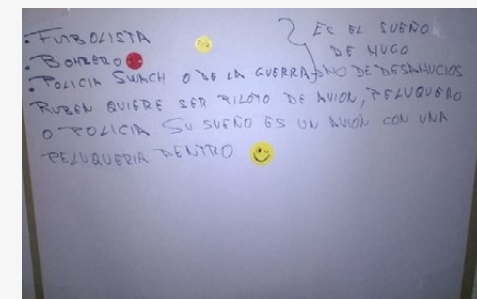 • FUTBOLISTA
• BOMBERO
• POLICIA SWACH O DE LA GUERRA NO DE DESAHUCIOS
ES EL SUEÑO
DE HUGO
RUBEN QUIERE SER PILOTO DE AVION, PELUQUERO
O POLICIA. SU SUEÑO ES UN AVIÓN CON UNA
PELUQUERIA DENTRO